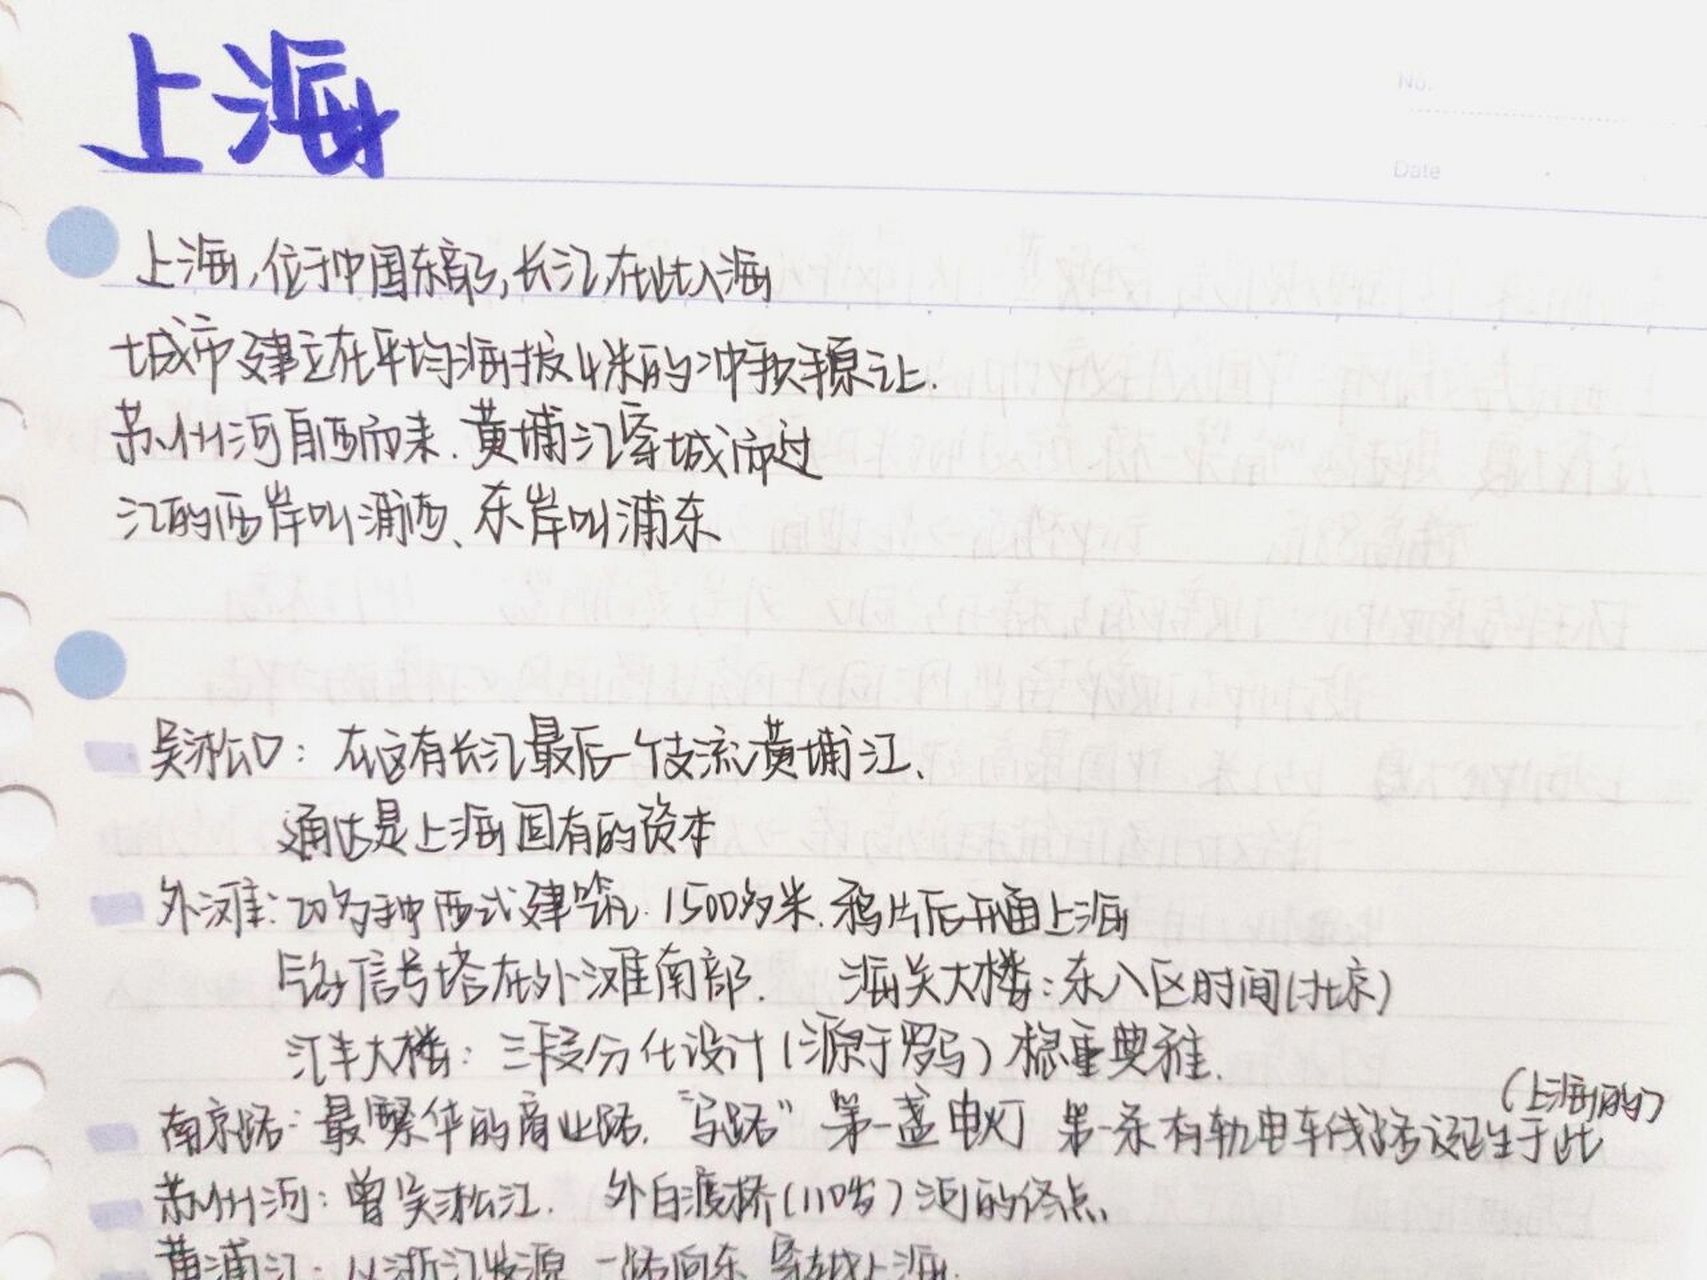 上海
No.
Date
上海,位于中国东部,长江在此入海
城市建立在平均海拔4米的冲积平原之上.
苏州河自西而来.黄埔江穿城而过
江的西岸叫浦西、东岸叫浦东
吴淞口:在这有长江最后一个支流黄埔江、
通达是上海固有的资本
外滩:20多种西式建筑.1500多米.鸦片后开通上海
信号塔在外滩南部. 海关大楼:东八区时间(北京)
汇丰大楼:三段分化设计(源于罗马)稳重典雅.
(上海的)
南京路:最繁华的商业路."马路" 第一盏电灯 第一条有轨电车线路诞生于此
苏州河:曾吴淞江. 外白渡桥(110岁)河的终点、
黄浦江:从浙江发源 一路向东 穿越上海.